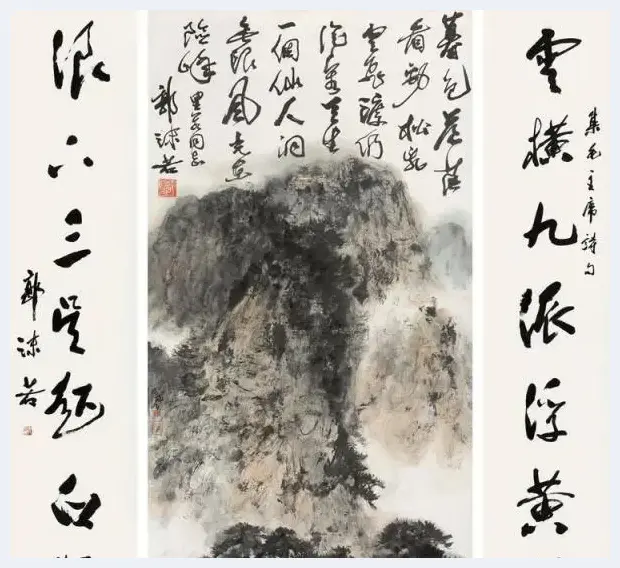 雲橫九派浮黃
集毛主席詩句
暮色蒼茫
看勁松亂
雲飛渡仍
從容天生
一個仙人洞
無限風光在
險峰
同志
郭沫若
浪下三吳起白
郭沫若